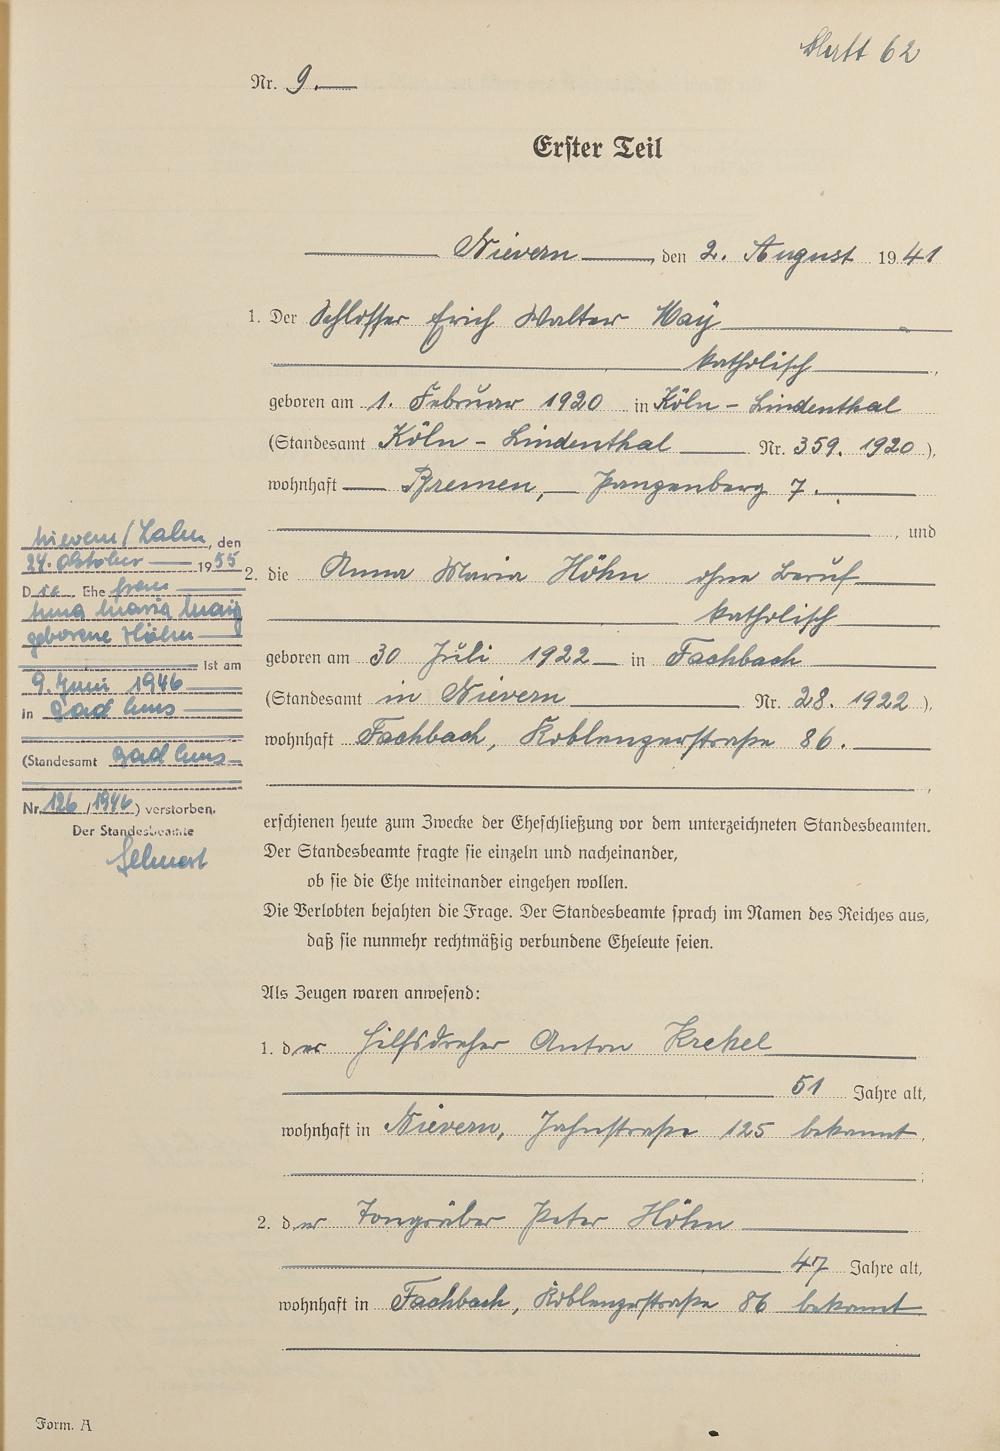 Blatt 62
Nr. 9.
Erster Teil
Nievern, den 2. August 1941
1. Der Schlosser Erich Walter May
katholisch,
geboren am 1. Februar 1920 in Köln - Lindenthal
(Standesamt Köln - Lindenthal Nr. 359. 1920),
wohnhaft Bremen, Pangenberg 7.
, und
2. die Anna Maria Höhn ohne Beruf
katholisch
geboren am 30 Juli 1922 in Fachbach
(Standesamt in Nievern Nr. 28. 1922),
wohnhaft Fachbach, Koblenzerstraße 86.
,
erschienen heute zum Zwecke der Eheschließung vor dem unterzeichneten Standesbeamten.
Der Standesbeamte fragte sie einzeln und nacheinander,
ob sie die Ehe miteinander eingehen wollen.
Die Verlobten bejahten die Frage. Der Standesbeamte sprach im Namen des Reiches aus,
daß sie nunmehr rechtmäßig verbundene Eheleute seien.
Als Zeugen waren anwesend:
1. der Hilfsdreher Anton Krekel
51 Jahre alt,
wohnhaft in Nievern, Jahnstraße 125 bekannt,
;
2. der Tongräber Peter Höhn
47 Jahre alt,
wohnhaft in Fachbach, Koblenzerstraße 86 bekannt
Nievern/Lahn, den
24. Oktober 1955
Die Ehefrau
Anna Maria May
geborene Höhn
ist am
9. Juni 1946
in Bad Ems
(Standesamt Bad Ems
Nr. 126/1946) verstorben.
Der Standesbeamte
Form. A